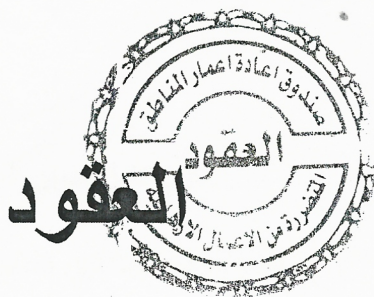 صندوق اعادة اعمار المناطق
العقود
المتضررة من الاعمال
العقود